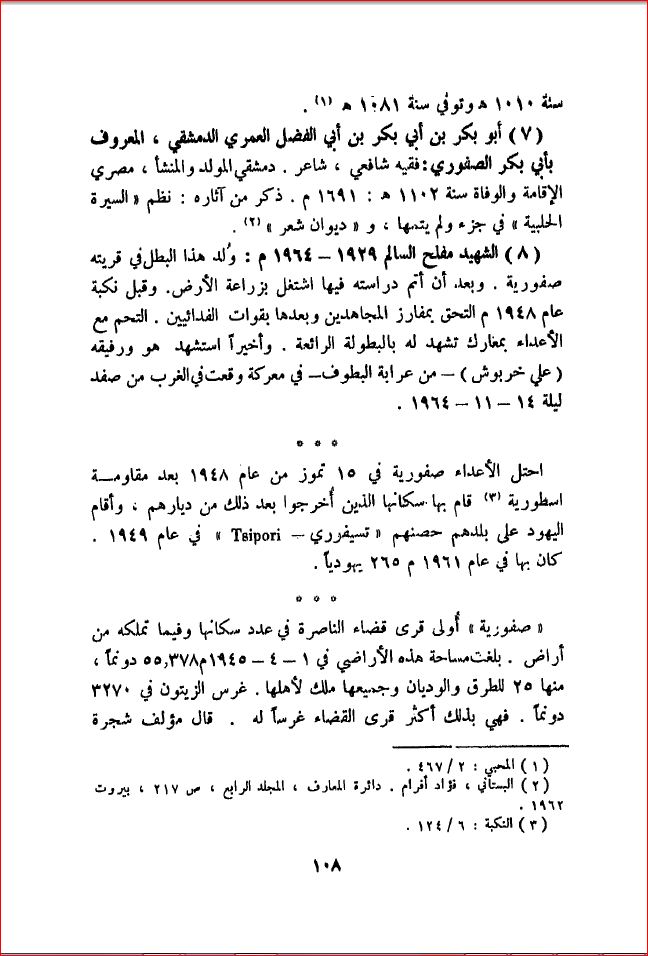 سنة ١٠١٠ هـ وتوفي سنة ١٠٨١ هـ (١) .
(٧) أبو بكر بن أبي بكر بن أبي الفضل العمري الدمشقي ، المعروف
بأبي بكر الصفوري : فقيه شافعي ، شاعر . دمشقي المولد والمنشأ ، مصري
الإقامة والوفاة سنة ١١٠٢ هـ : ١٦٩١ م . ذكر من آثاره : نظم « السيرة
الحلبية » في جزء ولم يتمها ، و « ديوان شعر » (٢) .
(٨) الشهيد مفلح السالم ١٩٢٩ – ١٩٦٤ م : وُلد هذا البطل في قريته
صفورية . وبعد أن أتم دراسته فيها اشتغل بزراعة الأرض. وقبل نكبة
عام ١٩٤٨ م التحق بمفارز المجاهدين وبعدها بقوات الفدائيين . التحم مع
الأعداء بمعارك تشهد له بالبطولة الرائعة . وأخيراً استشهد هو ورفيقه
( علي خربوش ) – من عرابة البطوف – في معركة وقعت في الغرب من صفد
ليلة ١٤ – ١١ – ١٩٦٤ .
* * *
احتل الأعداء صفورية في ١٥ تموز من عام ١٩٤٨ بعد مقاومــة
اسطورية (٣) قام بها سكانها الذين أُخرجوا بعد ذلك من ديارهم ، وأقام
اليهود على بلدهم حصنهم « تسيفرري – Tsipori » في عام ١٩٤٩ .
كان بها في عام ١٩٦١ م ٢٦٥ يهودياً .
* * *
« صفورية » أُولى قرى قضاء الناصرة في عدد سكانها وفيما تملكه من
أراض . بلغت مساحة هذه الأراضي في ١ – ٤ – ١٩٤٥م ٥٥,٣٧٨ دونماً ،
منها ٢٥ للطرق والوديان وجميعها ملك لأهلها . غرس الزيتون في ٣٢٧٠
دونماً . فهي بذلك أكثر قرى القضاء غرساً له . قال مؤلف شجرة
(١) المحبي : ٢ / ٤٦٧ .
(٢) البستاني ، فؤاد أفرام . دائرة المعارف ، المجلد الرابع ، ص ٢١٧ ، بيروت
١٩٦٢ .
(٣) النكبة : ٦ / ١٢٤ .
١٠٨